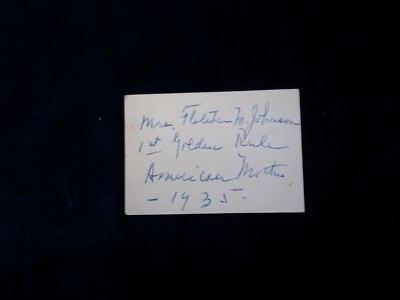 Mrs. Fletcher M. Johnson
1st Golden Rule
American Mother,
- 1935 -